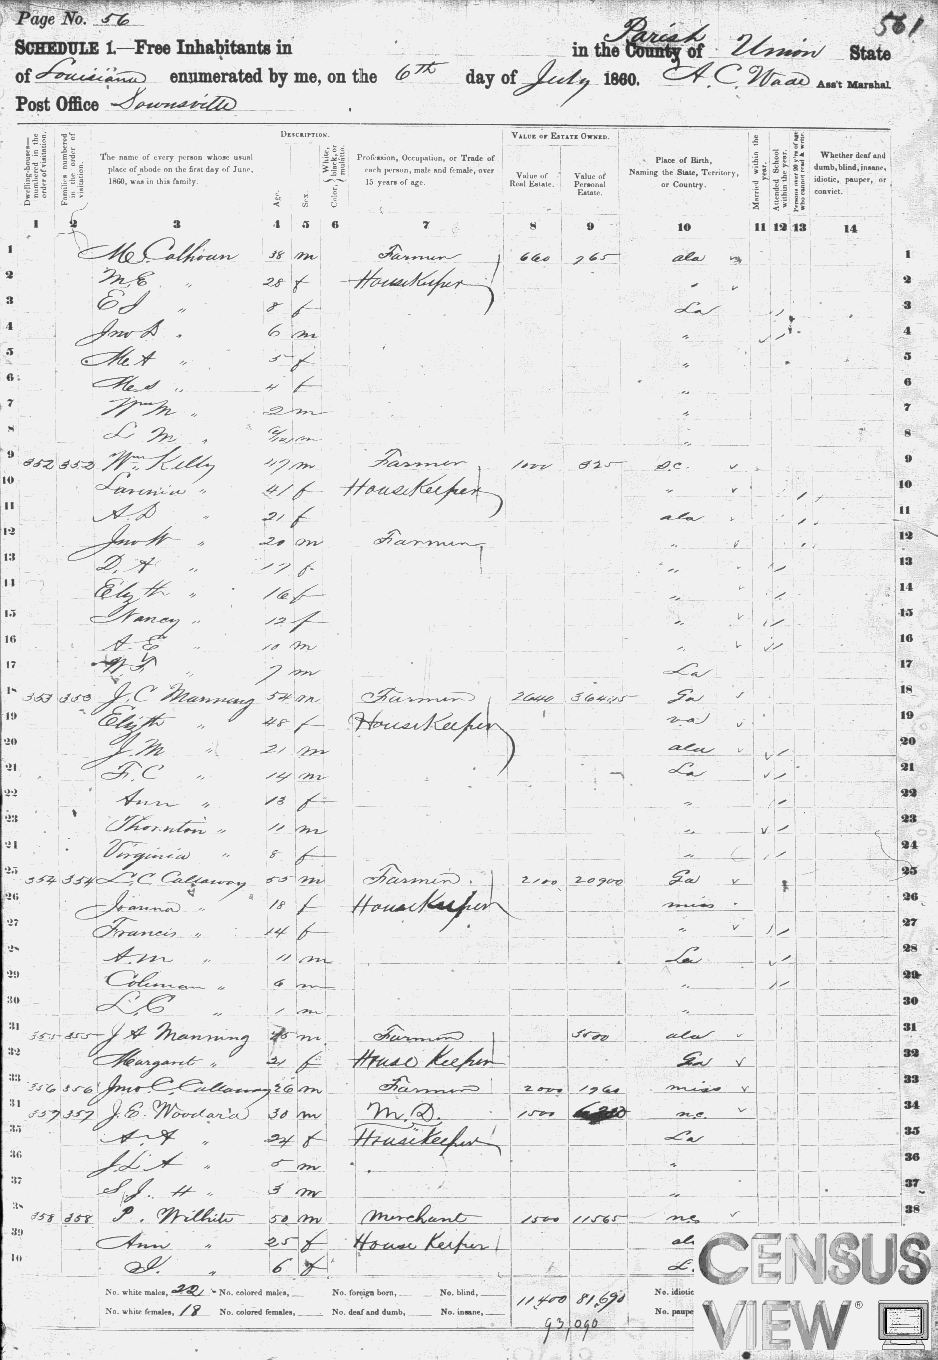 Page No. 56
561
SCHEDULE 1.—Free Inhabitants in in the County of Parish Union State
of Louisiana enumerated by me, on the 6th day of July 1860. A. C. Wade Ass't Marshal.
Post Office Downsville
Dwelling-houses—numbered in the order of visitation.
Families numbered in the order of visitation.
The name of every person whose usual place of abode on the first day of June, 1860, was in this family.
DESCRIPTION.
Age.
Sex.
Color, White, black, or mulatto.
Profession, Occupation, or Trade of each person, male and female, over 15 years of age.
VALUE OF ESTATE OWNED.
Value of Real Estate.
Value of Personal Estate.
Place of Birth, Naming the State, Territory, or Country.
Married within the year.
Attended School within the year.
Persons over 20 y'rs of age who cannot read & write.
Whether deaf and dumb, blind, insane, idiotic, pauper, or convict.
1 2 3 4 5 6 7 8 9 10 11 12 13 14
1 Calhoun 38 m Farmer 660 765 ala 1
2 M. E. " 28 f HouseKeeper " 2
3 E J " 8 f La 3
4 Jno B " 6 m " 4
5 " 5 f " 5
6 " 4 f " 6
7 Wm M " 2 m " 7
8 L M " m " 8
9 352 352 Wm Kelly 47 m Farmer 1000 325 S.C. 9
10 Lavinia " 41 f HouseKeeper " 10
11 A. D " 21 f ala 11
12 Jno W " 20 m Farmer " 12
13 D. A " 17 f " 13
14 Elizth " 16 f " 14
15 Nancy " 12 f " 15
16 A. E " 10 m " 16
17 " 7 m La 17
18 353 353 J. C Manning 54 m Farmer 2640 36415 Ga 18
19 Elizth " 48 f HouseKeeper va 19
20 J. M " 21 m ala 20
21 F. C " 14 m La 21
22 Ann " 13 f " 22
23 Thornton " 11 m " 23
24 Virginia " 8 f " 24
25 354 354 L. C. Callaway 55 m Farmer 2100 20900 Ga 25
26 Joanna " 18 f HouseKeeper miss 26
27 Francis " 14 f " 27
28 A. M " 11 m La 28
29 Coleman " 6 m " 29
30 L. C " 1 m " 30
31 355 355 J A Manning 25 m Farmer 3500 ala 31
32 Margaret " 21 f House Keeper Ga 32
33 356 356 Jno C. Callaway 26 m Farmer 2000 1960 miss 33
34 357 357 J. E. Woodard 30 m M. D. 1500 n.c. 34
35 A. A " 24 f HouseKeeper La 35
36 J. L A " 5 m " 36
37 S J. H " 3 m " 37
38 358 358 P. Wilhite 50 m Merchant 1500 11565 n.c. 38
39 Ann " 25 f House Keeper
40 " 6 f
No. white males, 22 No. colored males, No. foreign born, No. blind, 11,400 81,690 No. idiotic
No. white females, 18 No. colored females, No. deaf and dumb, No. insane, No. paupe
93,090
CENSUS VIEW ®